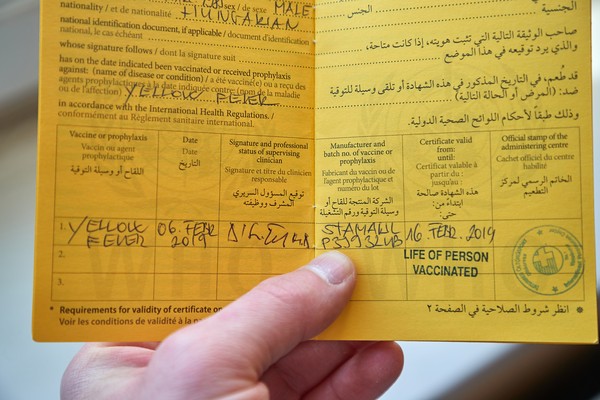 nationality / et de nationalité HUNGARIAN
sex / de sexe MALE
national identification document, if applicable / document d'identification
national, le cas échéant
whose signature follows / dont la signature suit
has on the date indicated been vaccinated or received prophylaxis
against: (name of disease or condition) / a été vacciné(e) ou a reçu des
agents prophylactiques à la date indiquée contre: (nom de la maladie
ou de l'affection) YELLOW FEVER
in accordance with the International Health Regulations. /
conformément au Règlement sanitaire international.
الجنسية
الجنس
صاحب الوثيقة التالية التي تثبت هويته، إذا كانت متاحة،
والذي يرد توقيعه في هذا الموضع
قد طُعم، في التاريخ المذكور في هذه الشهادة أو تلقى وسيلة للتوقية
ضد: (المرض أو الحالة التالية)
وذلك طبقاً لأحكام اللوائح الصحية الدولية.
Vaccine or prophylaxis
Vaccin ou agent
prophylactique
اللقاح أو وسيلة التوقية
Date
Date
التاريخ
Signature and professional
status of supervising
clinician
Signature et titre du clinicien
responsable
توقيع المسؤول السريري
المشرف ووظيفته
Manufacturer and
batch no. of vaccine or
prophylaxis
Fabricant du vaccin ou de
l'agent prophylactique et
numéro du lot
الشركة المنتجة للقاح أو
وسيلة التوقية ورقم التشغيلة
Certificate valid
from:
until:
Certificat valable
à partir du :
jusqu'au :
هذه الشهادة صالحة
ابتداءً من:
حتى:
Official stamp of the
administering centre
Cachet officiel du centre
habilité
الخاتم الرسمي لمركز
التطعيم
1. YELLOW
FEVER
06. FEBR
2019
STAMARIL
16. FEBR. 2019
LIFE OF PERSON
VACCINATED
2.
3.
* Requirements for validity of certificate on
Voir les conditions de validité à la
انظر شروط الصلاحية في الصفحة ٢